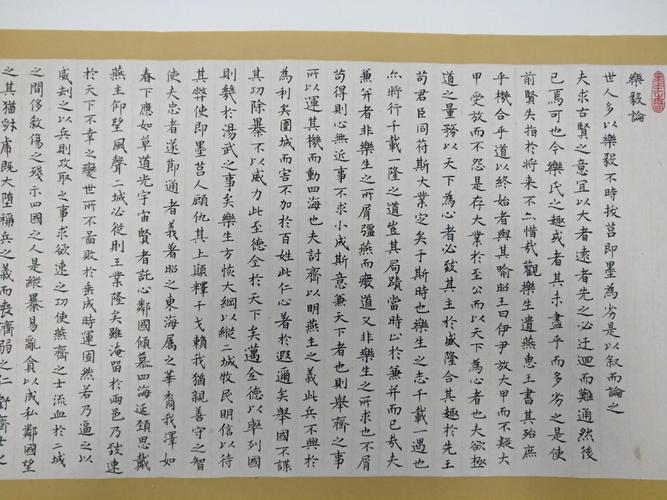 樂毅論
世人多以樂毅不時拔莒即墨為劣是以叙而論之
夫求古賢之意宜以大者遠者先之必迂迴而難通然後
已焉可也今樂氏之趣或者其未盡乎而多劣之是使
前賢失指於將来不亦惜哉觀樂生遺燕惠王書其殆庶
乎機合乎道以終始者與其喻昭王曰伊尹放大甲而不疑大
甲受放而不怨是存大業於至公而以天下為心者也夫欲極
道之量務以天下為心者必致其主於盛隆合其趣於先王
苟君臣同符斯大業定矣于斯時也樂生之志千載一遇也
亦將行千載一隆之道豈其局蹟當時止於兼并而已哉夫
兼并者非樂生之所屑彊燕而廢道又非樂生之所求也不屑
苟得則心無近事不求小成斯意兼天下者也則舉齊之事
所以運其機而動四海也夫討齊以明燕主之義此兵不興於
為利矣圍城而害不加於百姓此仁心著於遐邇矣舉國不謀
其功除暴不以威力此至德全於天下矣邁全德以率列國
則幾於湯武之事矣樂生方恢大綱以縱二城牧民明信以待
其弊使即墨莒人顧仇其上願釋干戈賴我猶親善守之智
使夫忠者遂節通者義著昭之東海屬之華裔我澤如
春下應如草道光宇宙賢者託心鄰國傾慕四海延頸思戴
燕主仰望風聲二城必從則王業隆矣雖淹留於兩邑乃致速
於天下不幸之變世所不圖敗於垂成時運固然若乃逼之以
威劫之以兵則攻取之事求欲速之功使燕齊之士流血於二城
之間侈殺傷之殘示四國之人是縱暴易亂貪以成私鄰國望
之其猶豺虎既大墮稱兵之義而喪濟弱之仁虧齊士之